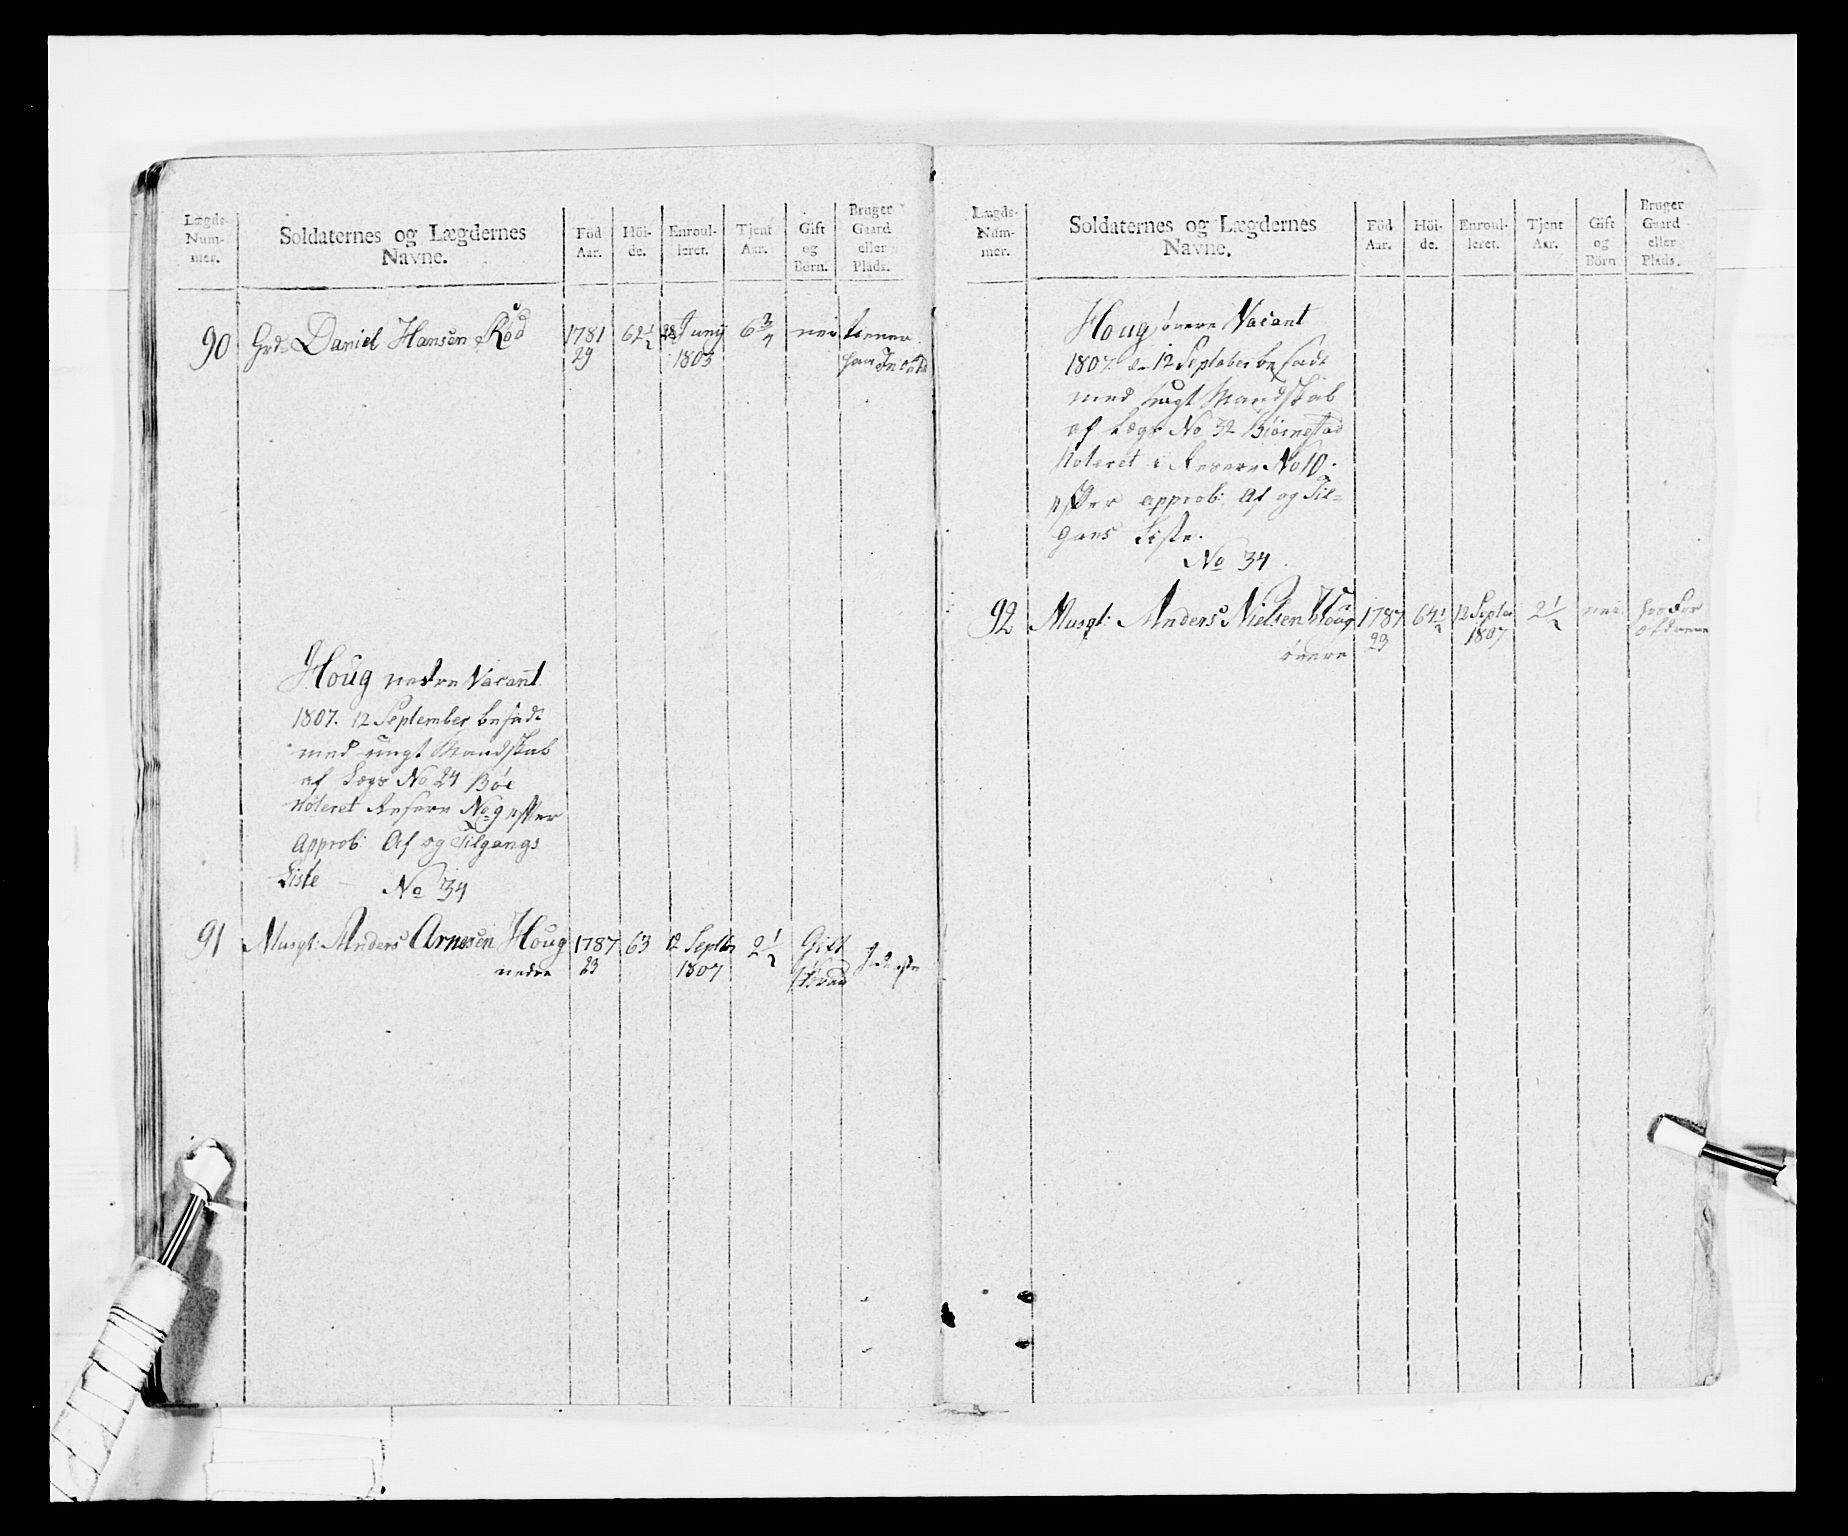 Lægds-
Num-
mer.
Soldaternes og Lægdernes
Navne.
Föd
Aar.
Höi-
de.
Enroul-
leret.
Tjent
Aar.
Gift
og
Börn.
Bruger
Gaard
eller
Plads.
90 Grd: Daniel Hansen Röd 1781 62½ 28 Junij 6¾ nei tiener
29 1803
Houg nedre Vacant
1807. 12 September besadt
med ungt Mandskab
af Lægd No 24 Böe
Noteret Reserve No 9 efter
Approb: Af og Tilgangs
Liste No 34
91 Musqt: Anders Arnesen Houg 1787 63 12 Septbr 2½ Gift
nedre 23 1807
Lægds-
Num-
mer.
Soldaternes og Lægdernes
Navne.
Föd
Aar.
Höi-
de.
Enroul-
leret.
Tjent
Aar.
Gift
og
Börn
Bruger
Gaard
eller
Plads.
Houg övere Vacant
1807 d. 12 September besadt
med ungt Mandskab
af Lægd No 32 Biörnestad
Noteret i Reserve No 10.
efter approb: Af og Til=
gans Liste.
No 34.
92 Musqt: Anders Nielsen Houg 1787 64½ 12 Septbr 2½ nei
övere 23 1807